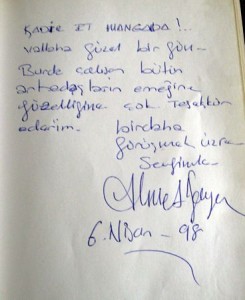 KADİR ET MANGADA !..
vallaha güzel bir gün-
Burda çalışan bütün
arkadaşların emeğine
güzelliğine çok teşekkür
ederim. birdaha
görüşmek üzre
Sevgimle
6. Nisan - 98